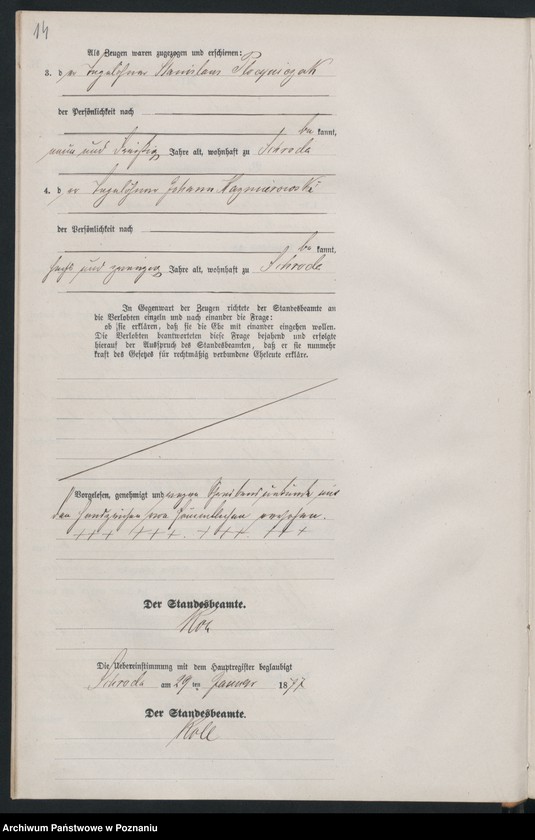 14
Als Zeugen waren zugezogen und erschienen:
3. der Tagelöhner Stanislaus
der Persönlichkeit nach
be kannt,
neun und dreißig Jahre alt, wohnhaft zu Schroda
4. der Tagelöhner Johann Kazmierowski
der Persönlichkeit nach
be kannt,
sechs und zwanzig Jahre alt, wohnhaft zu Schroda
In Gegenwart der Zeugen richtete der Standesbeamte an
die Verlobten einzeln und nach einander die Frage:
ob sie erklären, daß sie die Ehe mit einander eingehen wollen.
Die Verlobten beantworteten diese Frage bejahend und erfolgte
hierauf der Ausspruch des Standesbeamten, daß er sie nunmehr
kraft des Gesetzes für rechtmäßig verbundene Eheleute erkläre.
Vorgelesen, genehmigt und wegen Schreibensunkunde mit
den Handzeichen versehen.
+++ +++ +++ +++
Der Standesbeamte.
Die Uebereinstimmung mit dem Hauptregister beglaubigt
Schroda am 29 ten Januar 1877
Der Standesbeamte.
Archiwum Państwowe w Poznaniu